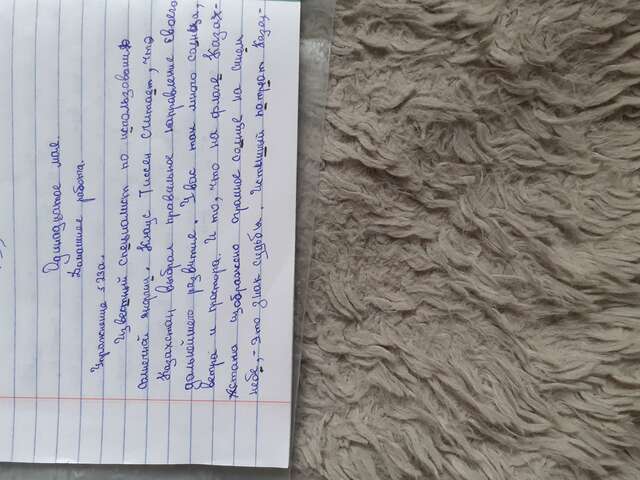 Одиннадцатое мая.
Домашнее работа.
Упражнение 123а.
Известный специалист по использованию
солнечной энергии, Клаус Тиссен считает, что
Казахстан выбрал правильное направление своего
дальнейшего развития. У вас так много солнца,
ветра и простора. И то, что на флаге Казах-
стана изображено огромное солнце на синем
небе, - это знак судьбы. Истинный патриот Казах-